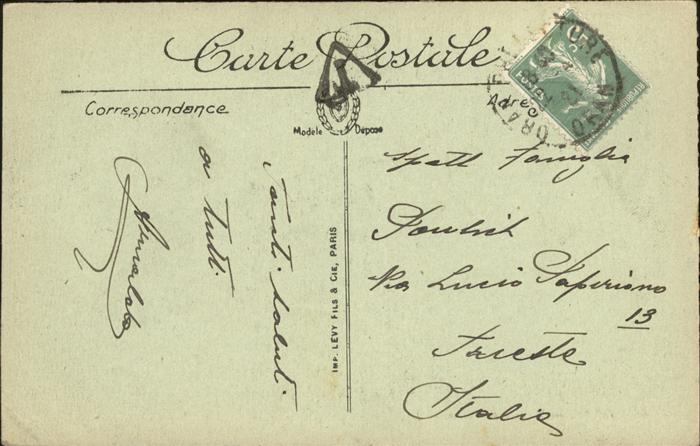 Carte Postale
Correspondance
Adresse
Modele Déposé
T
Tanti saluti
a tutti
Arnaldo
IMP. LEVY FILS & CIE, PARIS
Spett Famiglia
Via Lucio Papiriano
13
Trieste
Italia